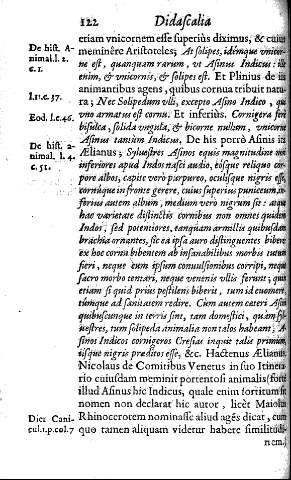 122 Didascalia
etiam vnicornem esse superiùs diximus, & cuius
meminêre Aristoteles; At solipes, idémque vnicor-
ne est, quanquam rarum, vt Asinus Indicus: ille
enim, & vnicornis, & solipes est. Et Plinius de iis
animantibus agens, quibus cornua tribuit natu-
ra; Nec Solipedum vlli, excepto Asino Indico, qui
vno armatus est cornu. Et inferiùs. Cornigera ferè
bisulca, solida vngula, & bicorne nullum, vnicorne
Asinus tantùm Indicus. De his porrò Asinis ita
Ælianus; Sylvestres Asinos equis magnitudine non
inferiores apud Indos nasci audio, eósque reliquo cor-
pore albos, capite verò purpureo, oculísque nigris esse,
cornúque in fronte gerere, cuius superius puniceum, in-
ferius autem album, medium verò nigrum sit: atque
hac varietate distinctis cornibus non omnes quidem
Indos, sed potentiores, eanquam armillis quibusdam
brachia ornantes, sic ea ipsa auro distinguentes bibere:
ex hoc cornu bibentem ab insanabilibus morbis tutum
fieri, neque enim ipsum conuulsionibus corripi, neque
sacro morbo tentari, neque venenis vllis ferunt; quin
etiam si quid prius pestilens biberit, tum id euomere,
túmque ad sanitatem redire. Cùm autem cæteri Asini
quibuscunque in terris sint, tam domestici, quàm syl-
uestres, tum solipeda animalia non talos habeant; A-
sinos Indicos cornigeros Cresias inquit talis primùm,
iísque nigris præditos esse, &c. Hactenus Ælianus.
Nicolaus de Comitibus Venetus in suo Itinera-
rio cuiusdam meminit portentosi animalis (fortè
illud Asinus hic Indicus, quale enim fortitum sit
nomen non declarat hic autor, licèt Maiolus
Rhinocerotem nominasse aliud agês dicat, cum
quo tamen aliquam videtur habere similitudi-
nem.)
De hist. A-
nimal. l. 2.
c. 1.
l. 11. c. 37.
Eod. l. c. 46.
De hist. a-
nimal. l. 4.
c. 52.
Dier. Cani-
cul. 1. p. col. 7